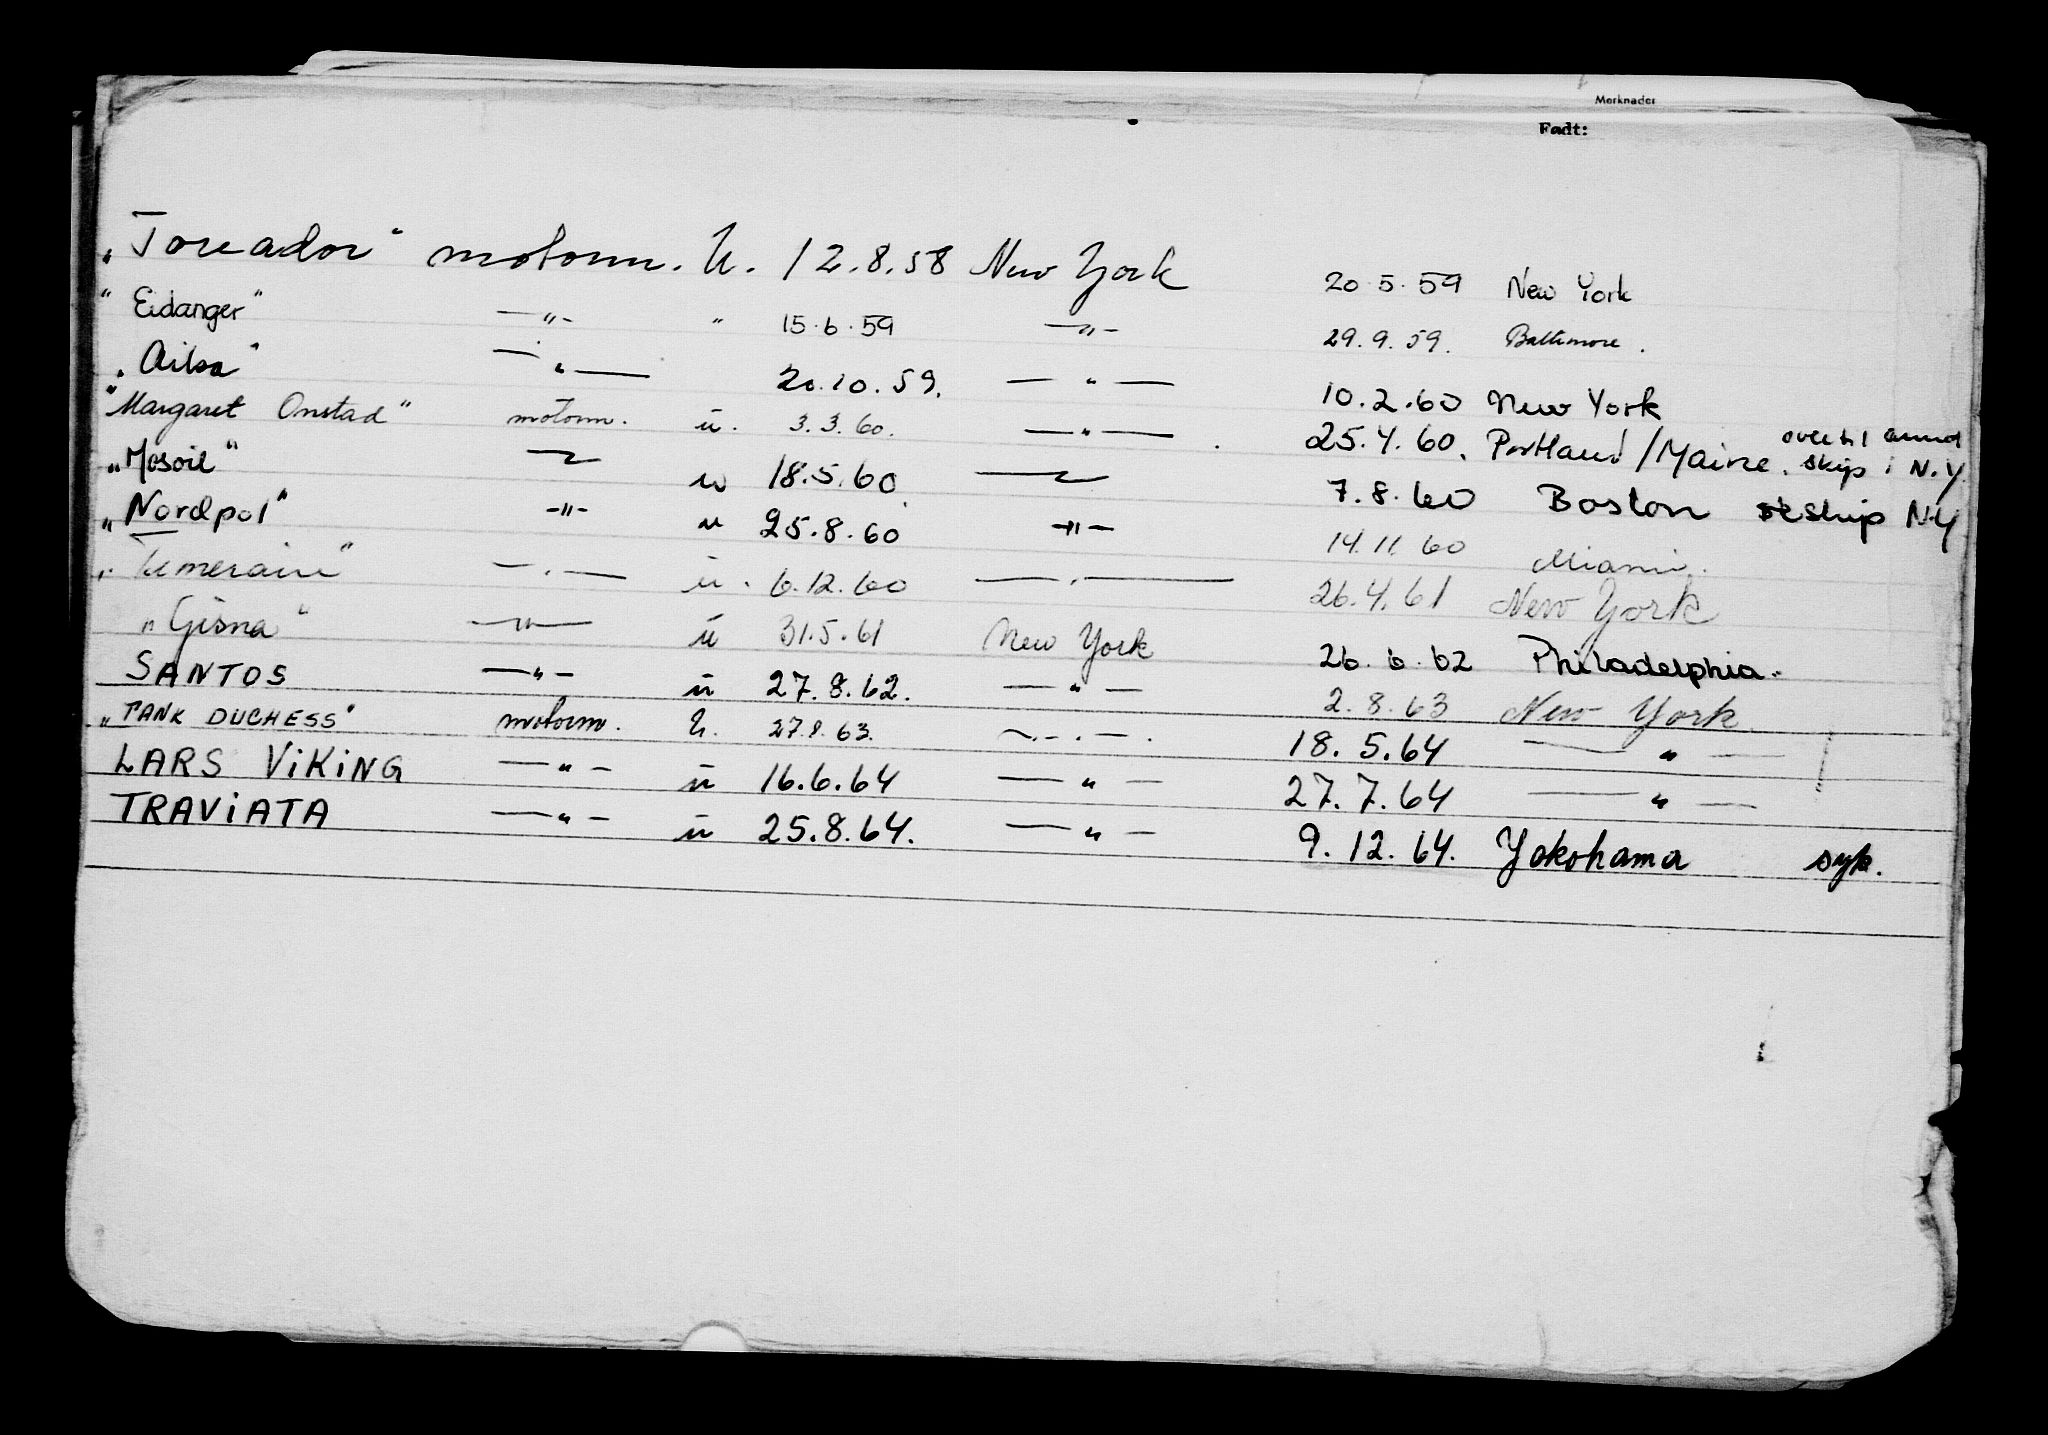 Merknader
Født:
„Toreador" motorm. U. 12.8.58 New York 20.5.59 New York
"Eidanger" —"— " 15.6.59 —"— 29.9.59. Baltimore.
„Ailsa" —"— 20.10.59. —"— 10.2.60 New York
"Margaret Onstad" motorm. u. 3.3.60. —"— 25.4.60. Portland/Maine. over til annet skip i N.Y.
„Mosoil" —"— u 18.5.60 —"— 7.8.60 Boston skip N.Y
„Nordpol" —"— u 25.8.60 —"— 14.11.60 Miami.
„Temeraire" —"— u. 6.12.60 —"— 26.4.61 New York
„Gisna" —"— u 31.5.61 New York 26.6.62 Philadelphia.
SANTOS —"— u 27.8.62. —"— 2.8.63 New York
„TANK DUCHESS" motorm. U. 27.8.63. —"— 18.5.64 —"—
LARS ViKiNG —"— u 16.6.64 —"— 27.7.64 —"—
TRAViATA —"— u 25.8.64. —"— 9.12.64. Yokohama syk.